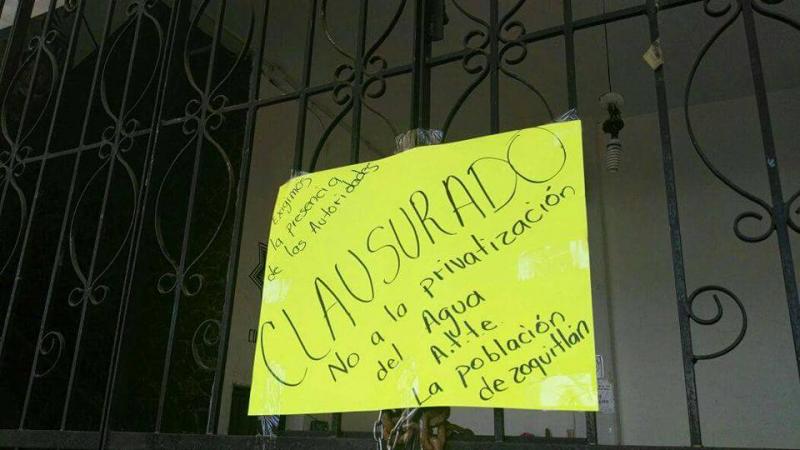 Exigimos
la presencia
de las Autoridades
CLAUSURADO
No a la privatización
del Agua
A.t.te
La población
de zoquitlán